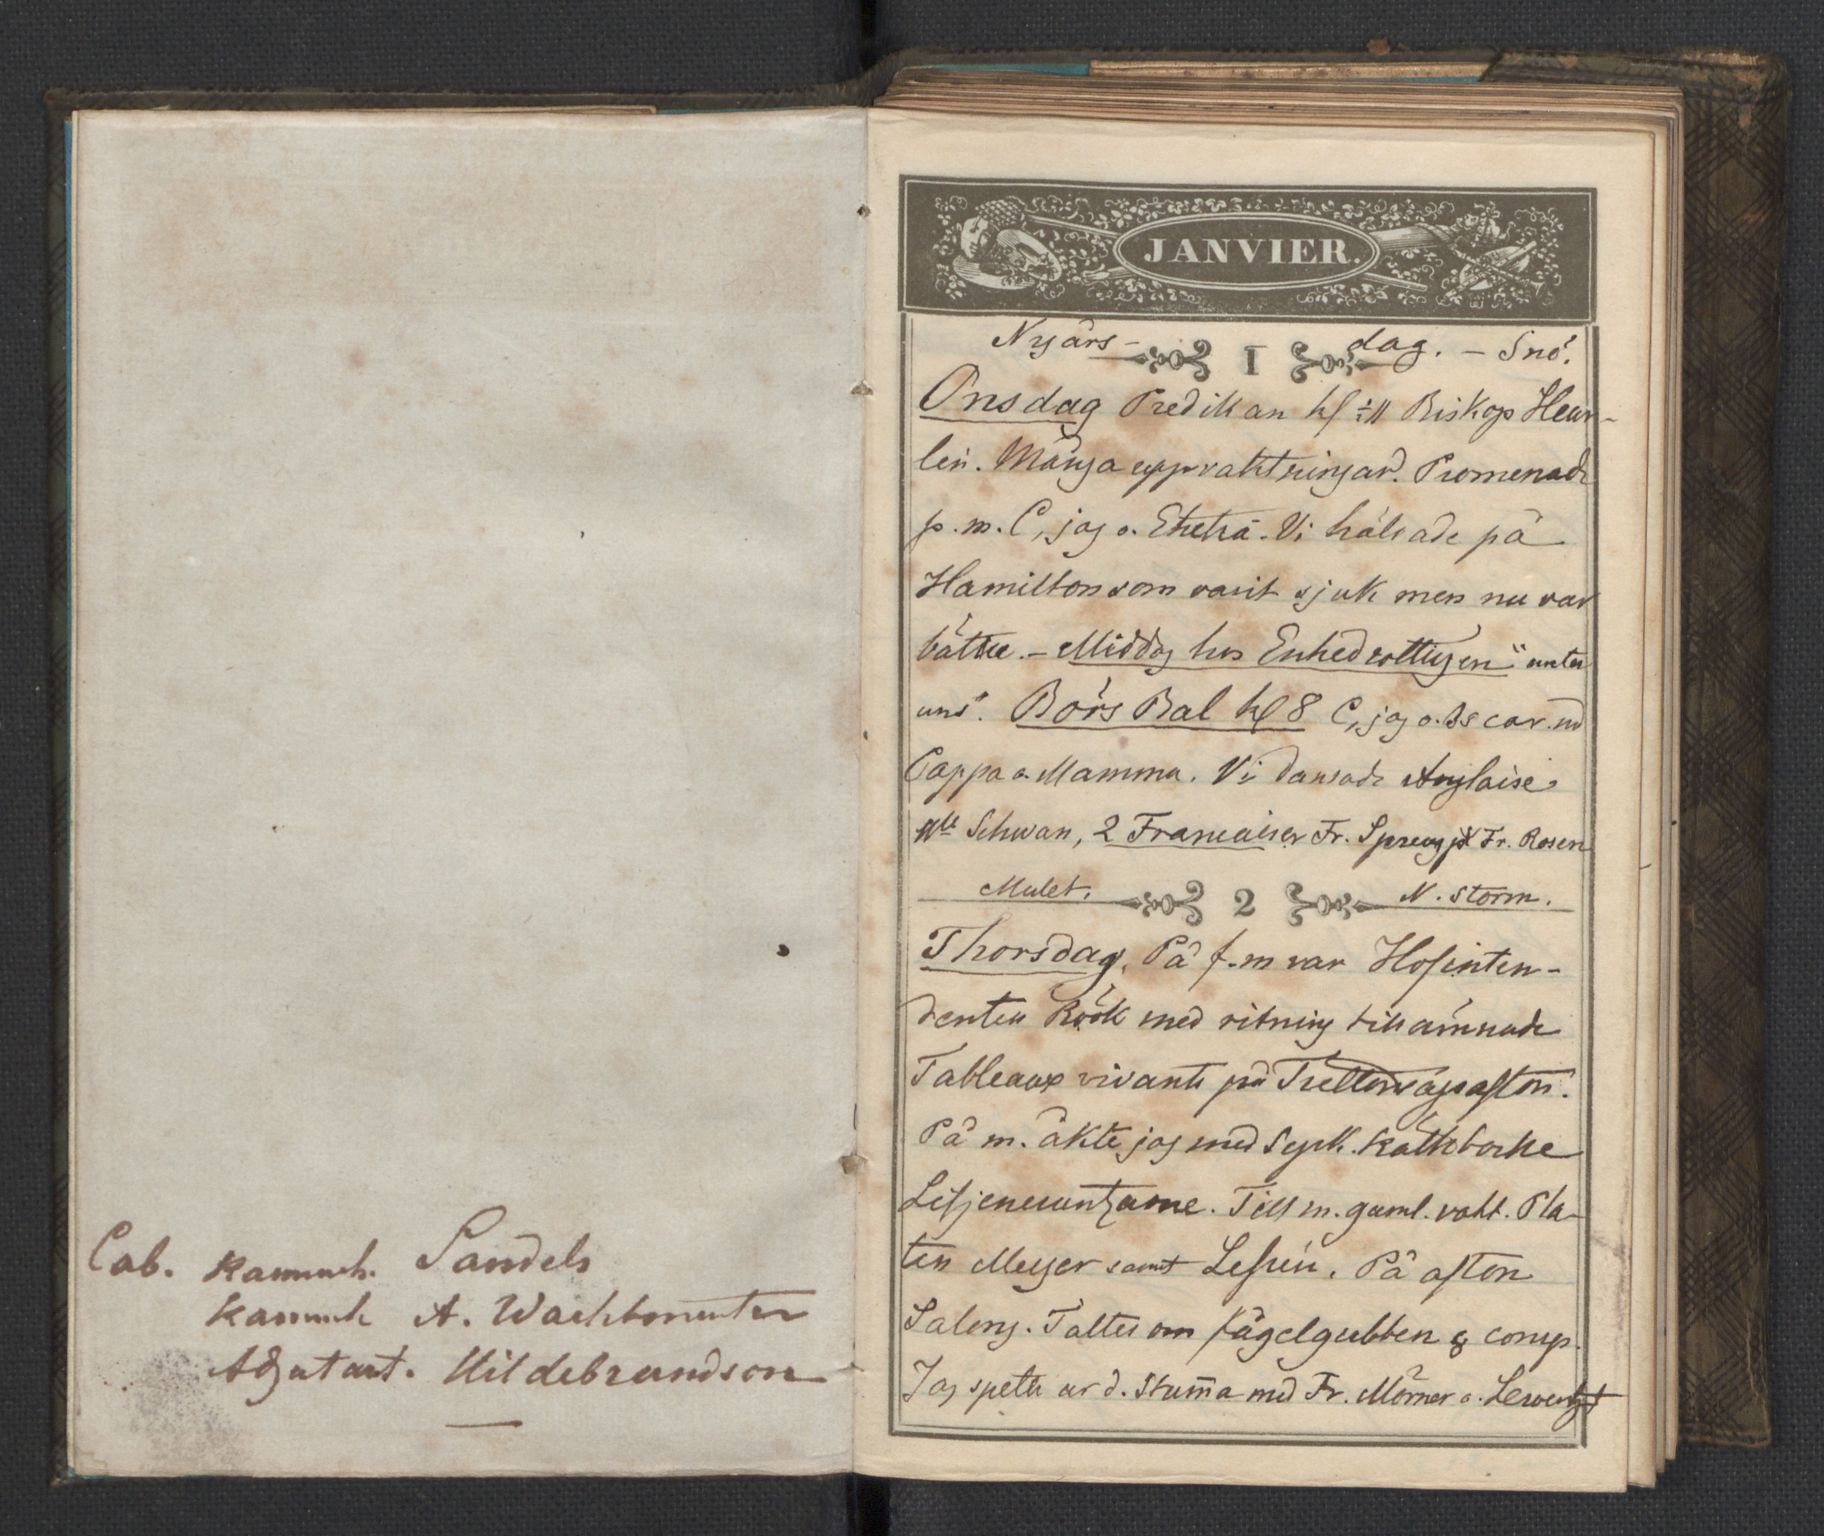 Cab. Kammh. Sandels
Kammh A. Wachtmeister
Adjutant. Hildebrandson
JANVIER.
Nyårs- 1 dag. – Snö.
Onsdag Predikan kl ½11 Biskop Heur-
lin. Många uppvaktningar. Promenade
p.m. C, jag o. Vi hälsade på
Hamilton som varit sjuk men nu var
bättre. – Middag hos Enkedrottnigen "unter
uns". Börs Bal kl 8 C, jag o. Oscar. md
Pappa o. Mamma. Vi dansade Anglaise
Schwan, 2 Francaiser Fr. Spreng Fr. Rosen
Mulet. 2 N. storm.
Thorsdag. På f.m var Hofinten-
denten Röök med ritning till ämnade
Tableaux vivants på Trettondagsafton.
På m. åkte jag med
Till m. gaml. vakt. Pla-
ten Meyer samt På afton
Salong. Taltes om fågelgubben & comp.
Jag spelte ur d. Stumma med Fr. Mörner o.